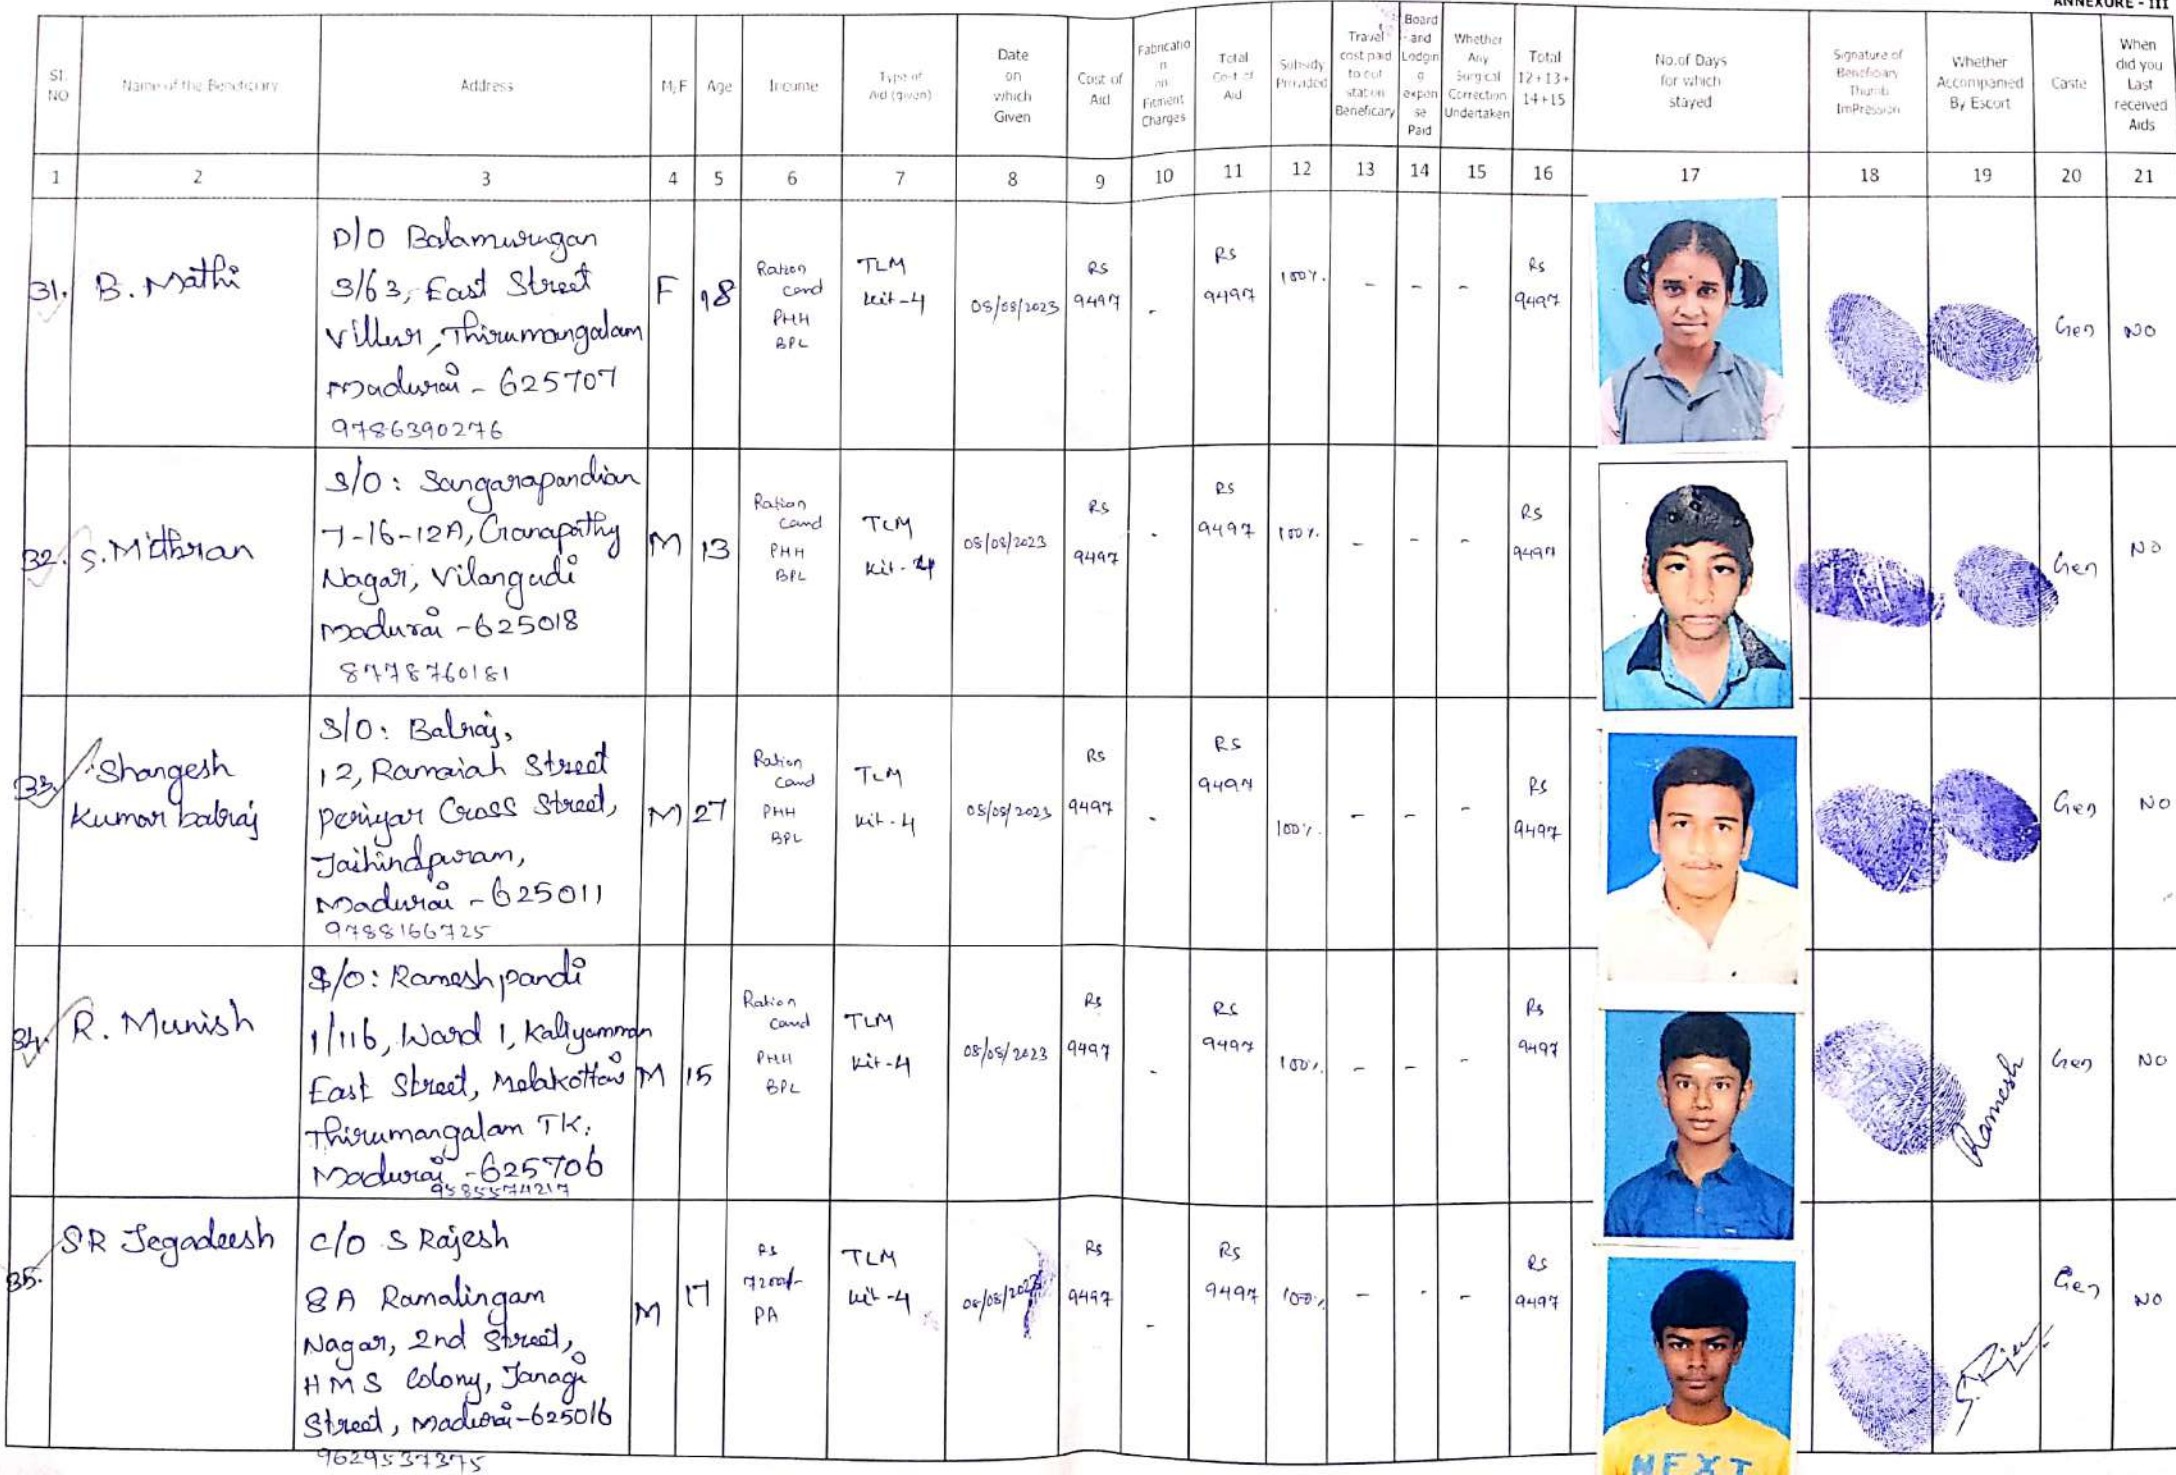 ANNEXURE - III
Sl. NO
Name of the Beneficiary
Address
M,F
Age
Income
Type of Aid (given)
Date on which Given
Cost of Aid
Fabrication on Fitment Charges
Total Cost of Aid
Subsidy Provided
Travel cost paid to out station Beneficary
Board and Lodging expense Paid
Whether Any Surgical Correction Undertaken
Total 12+13+14+15
No.of Days for which stayed
Signature of Beneficiary Thumb ImPression
Whether Accompanied By Escort
Caste
When did you Last received Aids
1 2 3 4 5 6 7 8 9 10 11 12 13 14 15 16 17 18 19 20 21
31. B. Mathi
D/O Balamurugan
3/63, East Street
Villur, Thirumangalam
Madurai - 625707
9786390276
F 18
Ration Card PHH BPL
TLM Kit-4
08/08/2023
Rs 9497
-
Rs 9497
100%.
- - -
Rs 9497
Gen
NO
32. S. Mithran
S/O: Sangarapandian
7-16-12A, Ganapathy
Nagar, Vilangudi
Madurai - 625018
8778760181
M 13
Ration Card PHH BPL
TLM Kit-4
08/08/2023
Rs 9497
-
Rs 9497
100%.
- - -
Rs 9497
Gen
NO
33. Shangesh
Kumar balraj
S/O: Balraj,
12, Ramaiah Street
Periyar Cross Street,
Jaihindpuram,
Madurai - 625011
9788166725
M 27
Ration Card PHH BPL
TLM Kit-4
08/08/2023
Rs 9497
-
Rs 9497
100%.
- - -
Rs 9497
Gen
NO
34. R. Munish
S/O: Rameshpandi
1/116, Ward 1, Kaliyamman
East Street, Melakottai
Thirumangalam TK.
Madurai - 625706
9585574217
M 15
Ration Card PHH BPL
TLM Kit-4
08/08/2023
Rs 9497
-
Rs 9497
100%.
- - -
Rs 9497
Ramesh
Gen
NO
35. SR Jegadeesh
C/O S Rajesh
8A Ramalingam
Nagar, 2nd Street,
HMS Colony, Janagi
Street, Madurai-625016
9629537375
M 17
Rs 7200/- PA
TLM Kit-4
08/08/2023
Rs 9497
-
Rs 9497
100%.
- - -
Rs 9497
NEXT
Gen
NO